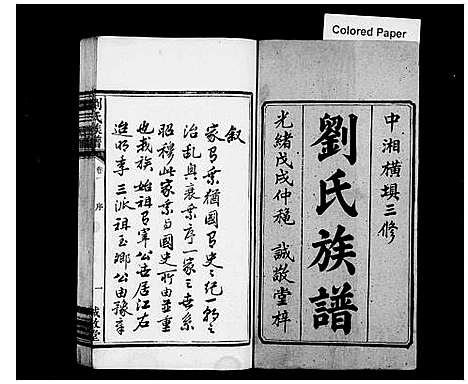 Colored Paper
中湘橫塤三修
劉氏族譜
光緒戊戌仲穐 誠敬堂梓
敘
家乘猶國史之紀一朝之
治亂興衰乘序一家之世系
昭穆此家乘與國史所由並重
也我族始祖宰公世居江右
迨明季三派祖玉卿公由豫章
劉氏族譜
序
一
誠敬堂